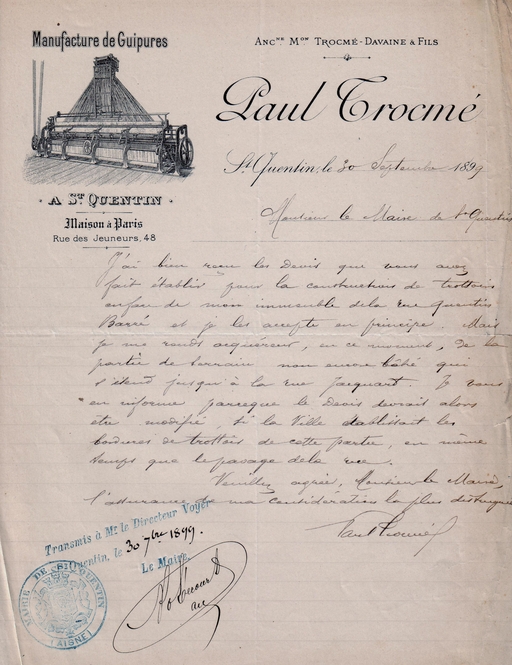 Manufacture de Guipures
A St QUENTIN
Maison à Paris
Rue des Jeuneurs, 48
Ancne Mon TROCMÉ-DAVAINE & FILS
Paul Trocmé
St Quentin, le 30 Septembre 1899
Monsieur le Maire de St Quentin
J'ai bien reçu les Devis que vous avez
fait établir pour la construction de trottoirs
en face de mon immeuble de la rue Quentin
Barré et je les accepte en principe. Mais
je me rends acquéreur, en ce moment, de la
partie de terrain non encore bâtie qui
s'étend jusqu'à la rue Jacquart. Je vous
en informe parceque le Devis devrait alors
être modifié, si la Ville établissait les
bordures de trottoirs de cette partie, en même
temps que le pavage de la rue.
Veuillez agréer, Monsieur le Maire,
l'assurance de ma considération la plus distinguée
Paul Trocmé
Transmis à Mr le Directeur Voyer
St Quentin, le 30 7bre 1899.
Le Maire,
MAIRIE DE St QUENTIN
(AISNE)